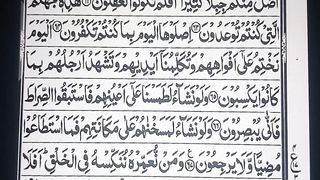 اضل منكم جبلا كثيرا افلم تكونوا تعقلون ۶۲ هذه جهنم
التي كنتم توعدون ۶۳ اصلوها اليوم بما كنتم تكفرون ۶۴ اليوم
نختم على افواههم وتكلمنا ايديهم وتشهد ارجلهم بما
كانوا يكسبون ۶۵ ولو نشاء لطمسنا على اعينهم فاستبقوا الصراط
فانى يبصرون ۶۶ ولو نشاء لمسخنهم على مكانتهم فما استطاعوا
مضيا ولا يرجعون ۶۷ ومن نعمره ننكسه في الخلق افلا